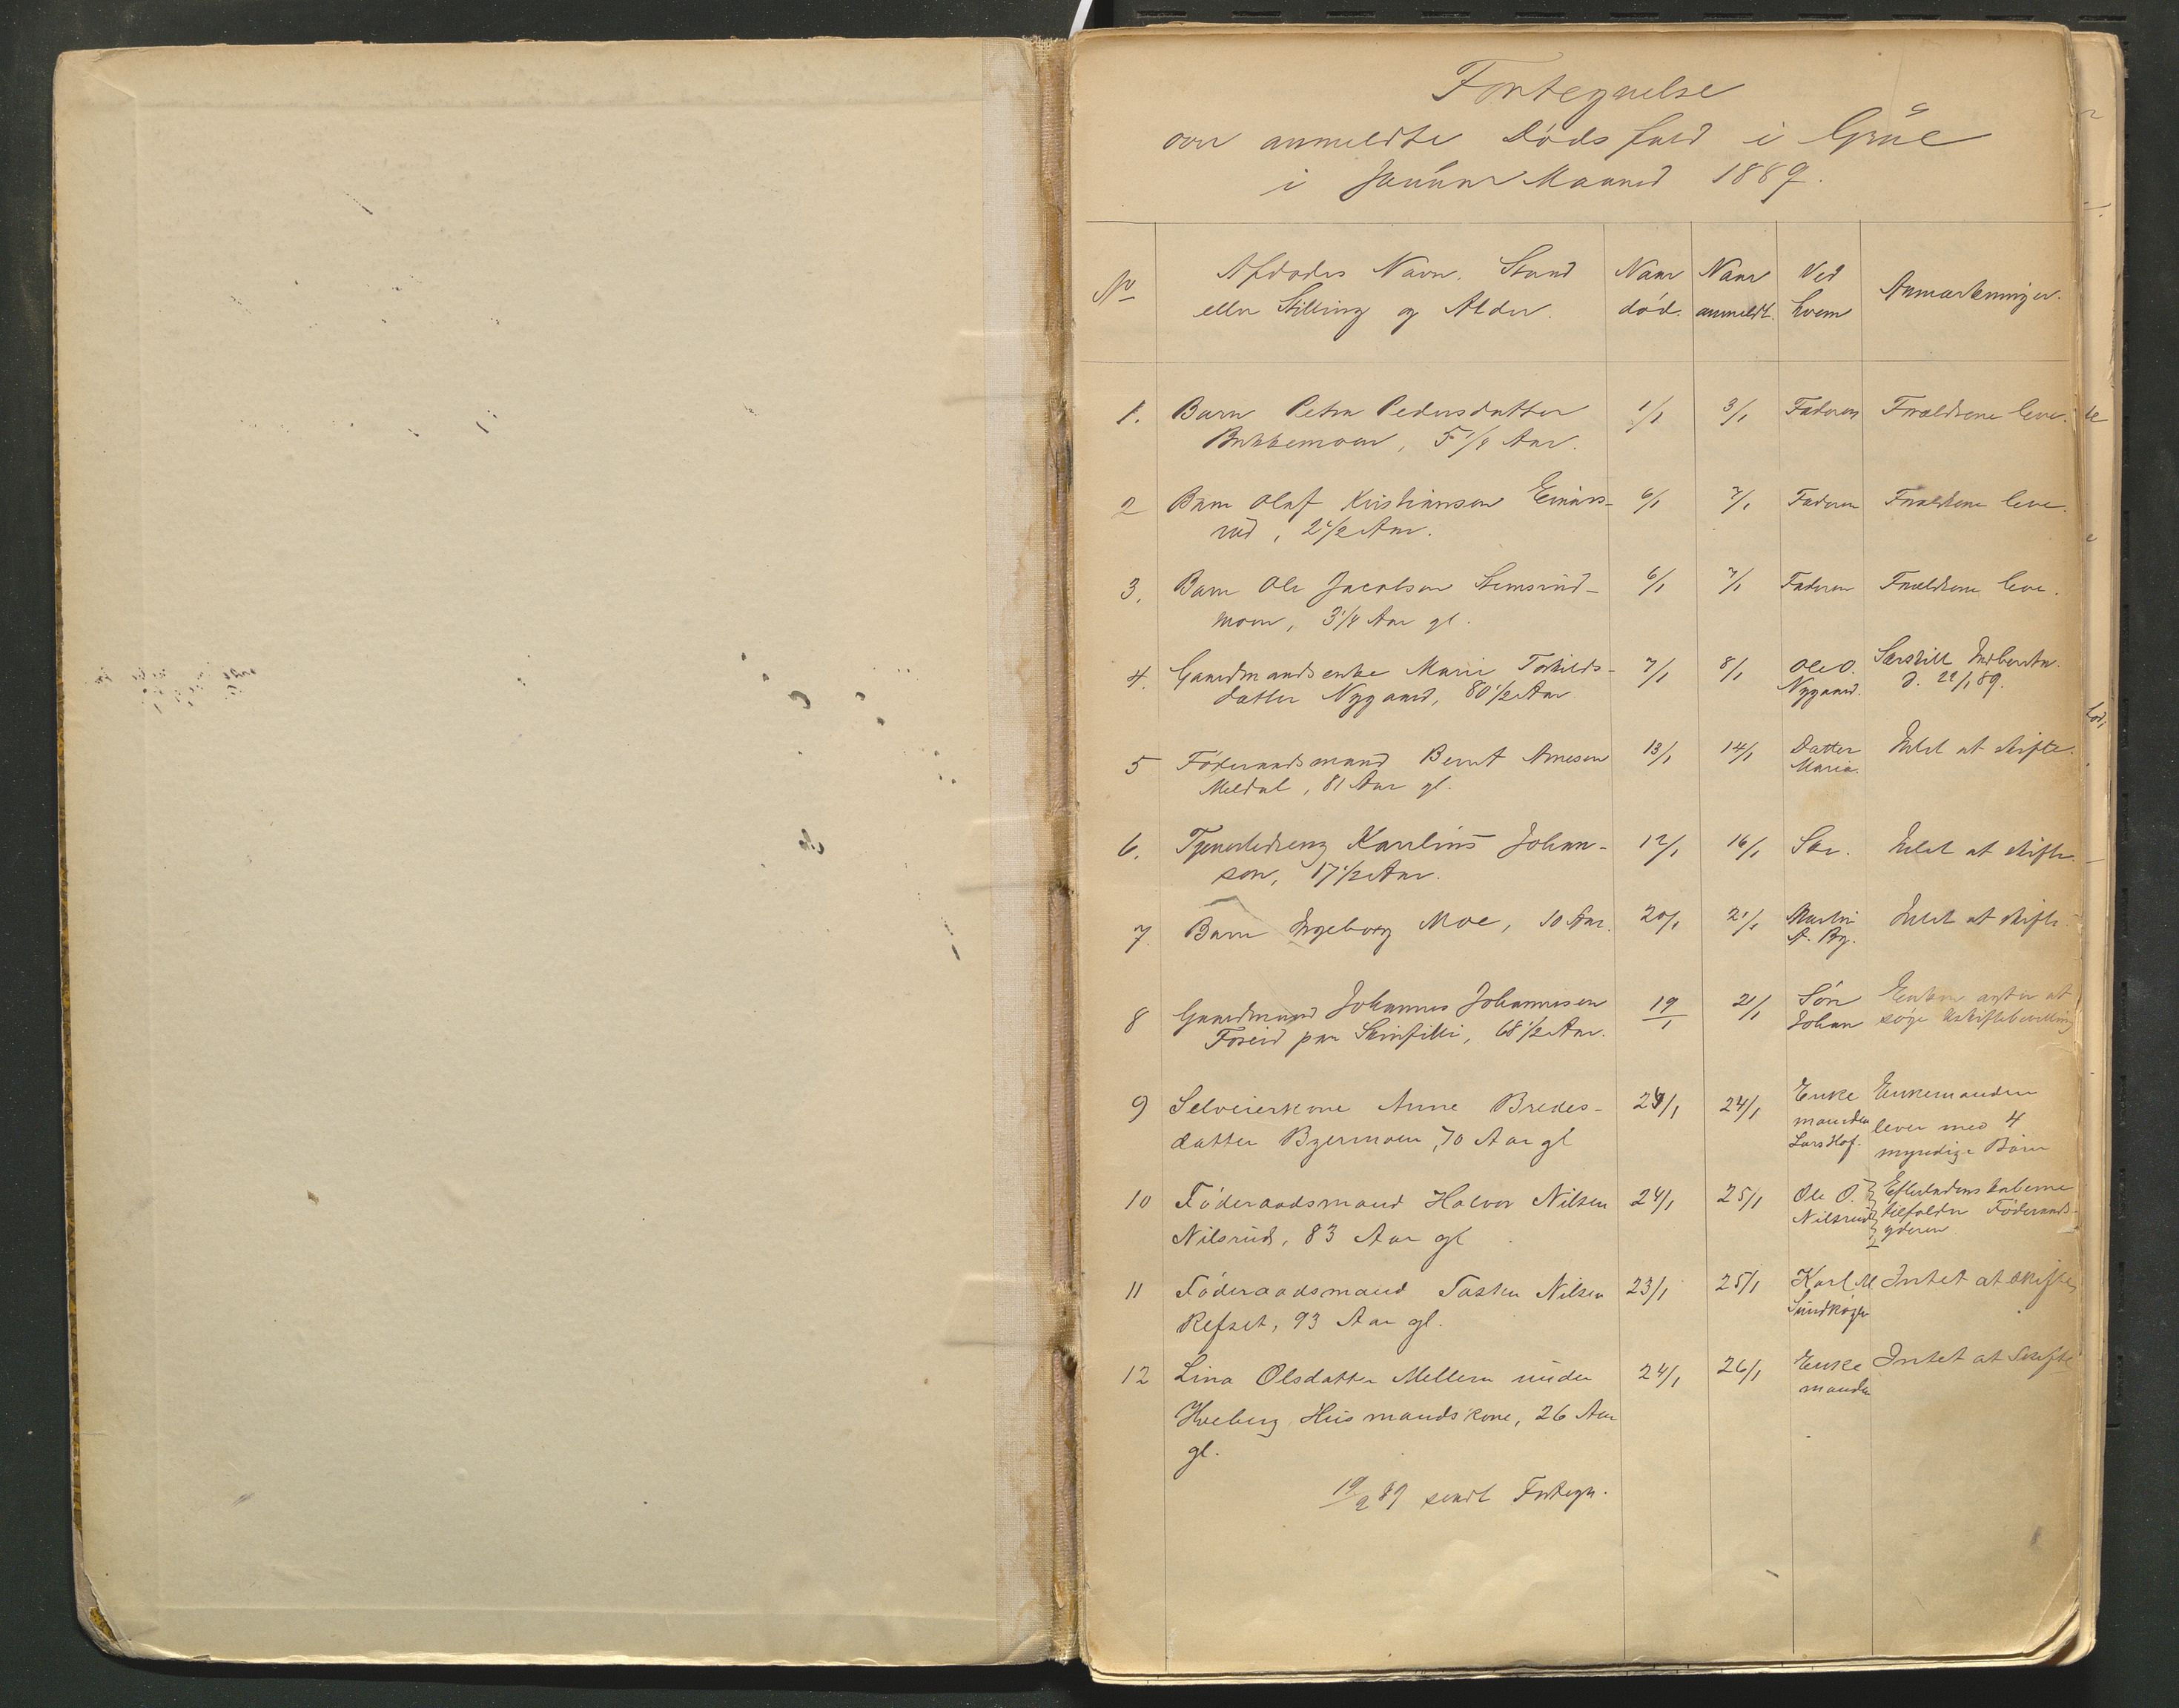 Fortegnelse
over anmeldte Dødsfald i Grue
i Januar Maaned 1889.
No
Afdødes Navn, Stand
eller Stilling og Alder.
Naar
død.
Naar
anmeldt.
Ved
hvem
Anmærkninger.
1. Barn Petra Pedersdatter 1/1 3/1 Faderen Forældrene leve.
5 1/4 Aar.
2 Barn Olaf Kristiansen Einars- 6/1 7/1 Faderen Forældrene leve.
rud, 2 1/2 Aar.
3. Barn Ole Jacobsen Stemsrud- 6/1 7/1 Faderen Forældrene leve.
moen, 3 1/4 Aar gl.
4. Gaardmandsenke Marie Torkilds- 7/1 8/1 Ole O. Særskilt Indberetn.
datter Nygaard, 80 1/2 Aar Nygaard. d. 22/1 89.
5 Føderaadsmand Bernt Arnesen 13/1 14/1 Datter Intet at skifte.
Meldal, 81 Aar gl. Maria.
6. Tjenestedreng Karelius Johan- 12/1 16/1 Intet at skifte.
sen, 17 1/2 Aar.
7. Barn Ingeborg Moe, 10 Aar. 20/1 21/1 Martin Intet at skifte
A. By.
8 Gaardmand Johannes Johannesen 19/1 21/1 Søn Enken agter at
Foseid paa 68 1/2 Aar. Johan søge Uskiftebevilling
9 Selveierkone Anne Bredes- 23/1 24/1 Enke Enkemanden
datter Bjermoen, 70 Aar gl manden lever med 4
Lars Hof. myndige Børn
10 Føderaadsmand Halvor Nilsen 24/1 25/1 Ole O. Efterladenskaberne
Nilsrud, 83 Aar gl Nilsrud tilfalder Føderaads-
yderen
11 Føderaadsmand Nilsen 23/1 25/1 Karl M Intet at skifte
Refset, 93 Aar gl.
12 Lina Olsdatter Mellem under 24/1 26/1 Enke Intet at Skifte
Hveberg, Husmandskone, 26 Aar manden
gl.
19/2 89 sendt Fortegn.